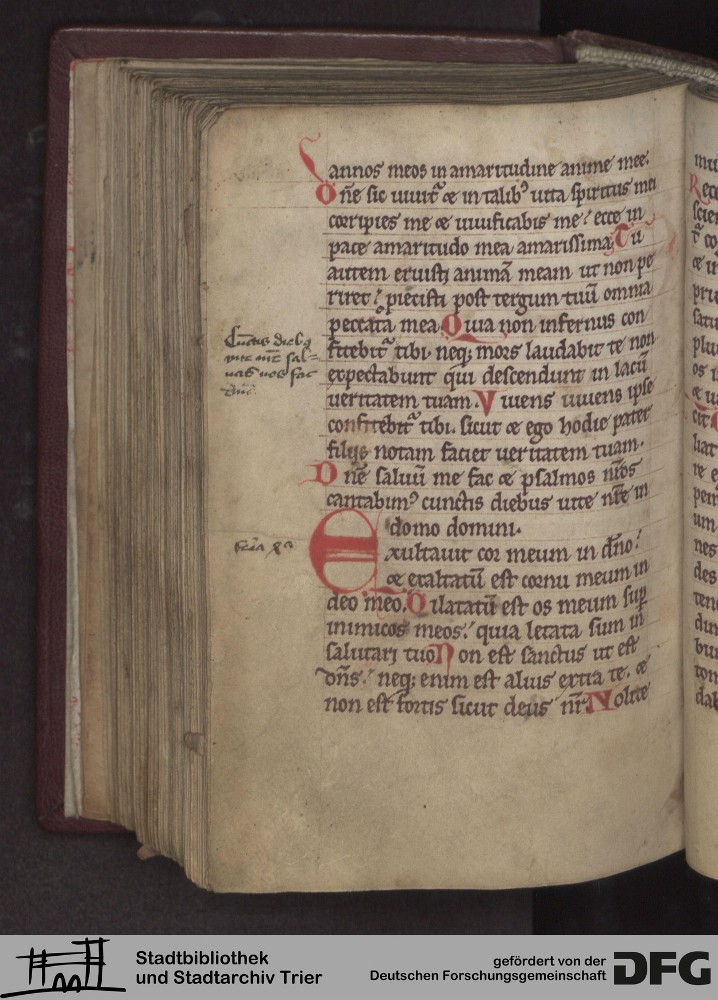 annos meos in amaritudine anime mee.
Dn̄e sic uiuit᷑ & in talib᷒ uita spiritus mei
corripies me & uiuificabis me? ecce in
pace amaritudo mea amarissima. Tu
autem eruisti animā meam ut non pe
riret? proiecisti post tergum tuū omnia
peccata mea. Quia non infernus con
fitebit᷑ tibi neq; mors laudabit te non
expectabunt qui descendunt in lacū
ueritatem tuam. Viuens uiuens ipse
confitebit᷑ tibi. sicut & ego hodie pater
filijs notam faciet ueritatem tuam.
Dn̄e saluū me fac & psalmos nr̄os
cantabim᷒ cunctis diebus uite nr̄e in
domo domini.
Exultauit cor meum in dn̄o?
& exaltatū est cornu meum in
deo meo. Dilatatū est os meum suꝑ
inimicos meos? quia letata sum in
salutari tuo. Non est sanctus ut est
dn̄s? neq; enim est alius extra te. &
non est fortis sicut deus nr̄. Nolite
Stadtbibliothek
und Stadtarchiv Trier
gefördert von der
Deutschen Forschungsgemeinschaft
DFG